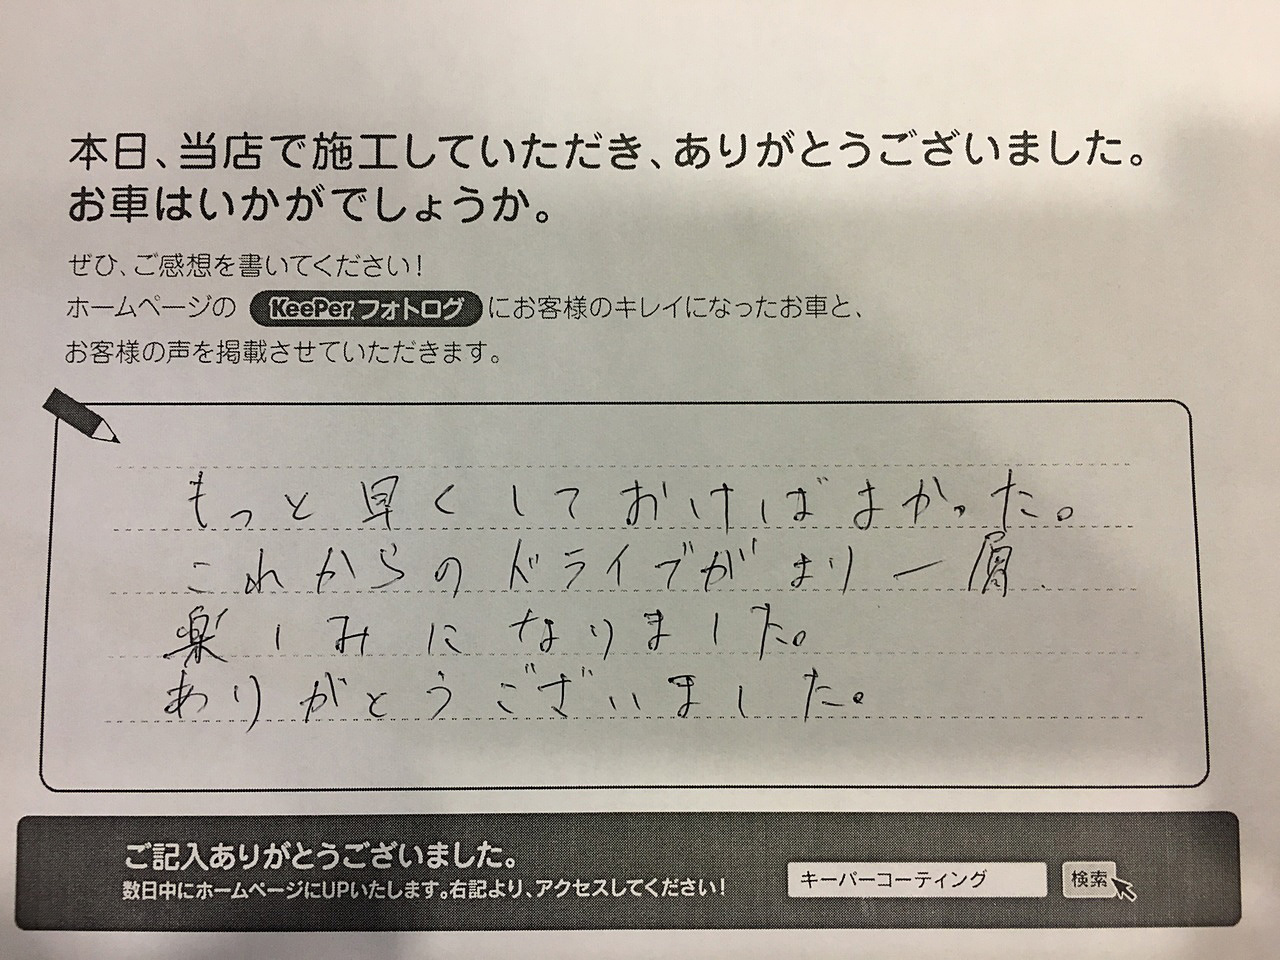 本日、当店で施工していただき、ありがとうございました。
お車はいかがでしょうか。
ぜひ、ご感想を書いてください！
ホームページの KeePer フォトログ にお客様のキレイになったお車と、
お客様の声を掲載させていただきます。
もっと早くしておけばよかった。
これからのドライブがより一層
楽しみになりました。
ありがとうございました。
ご記入ありがとうございました。
数日中にホームページにUPいたします。右記より、アクセスしてください！
キーパーコーティング 検索